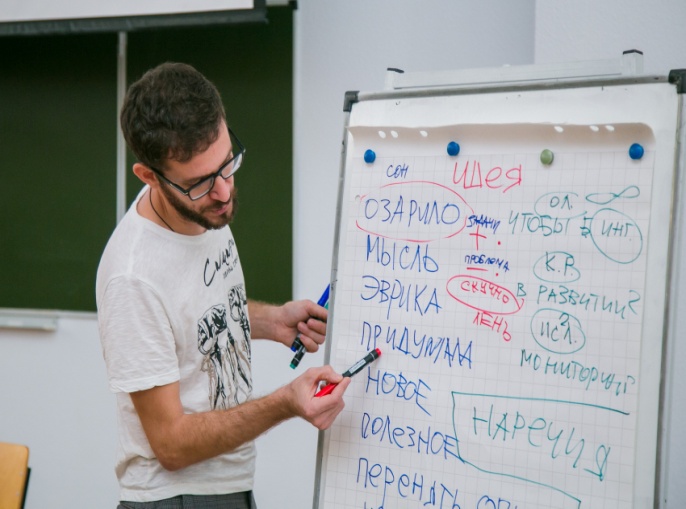 сон
идея
ОЗАРИЛО
задачи
+
проблема
МЫСЛЬ
ЭВРИКА
СКУЧНО
ЛЕНЬ
ПРИДУМАЛА
НОВОЕ
ПОЛЕЗНОЕ
ПЕРЕНЯТЬ
ОЛ.
∞
ЧТОБЫ
ИНГ
К.Р.
В РАЗВИТИИ?
ИСЛ.
МОНИТОРИНГ
НАРЕЧИЯ